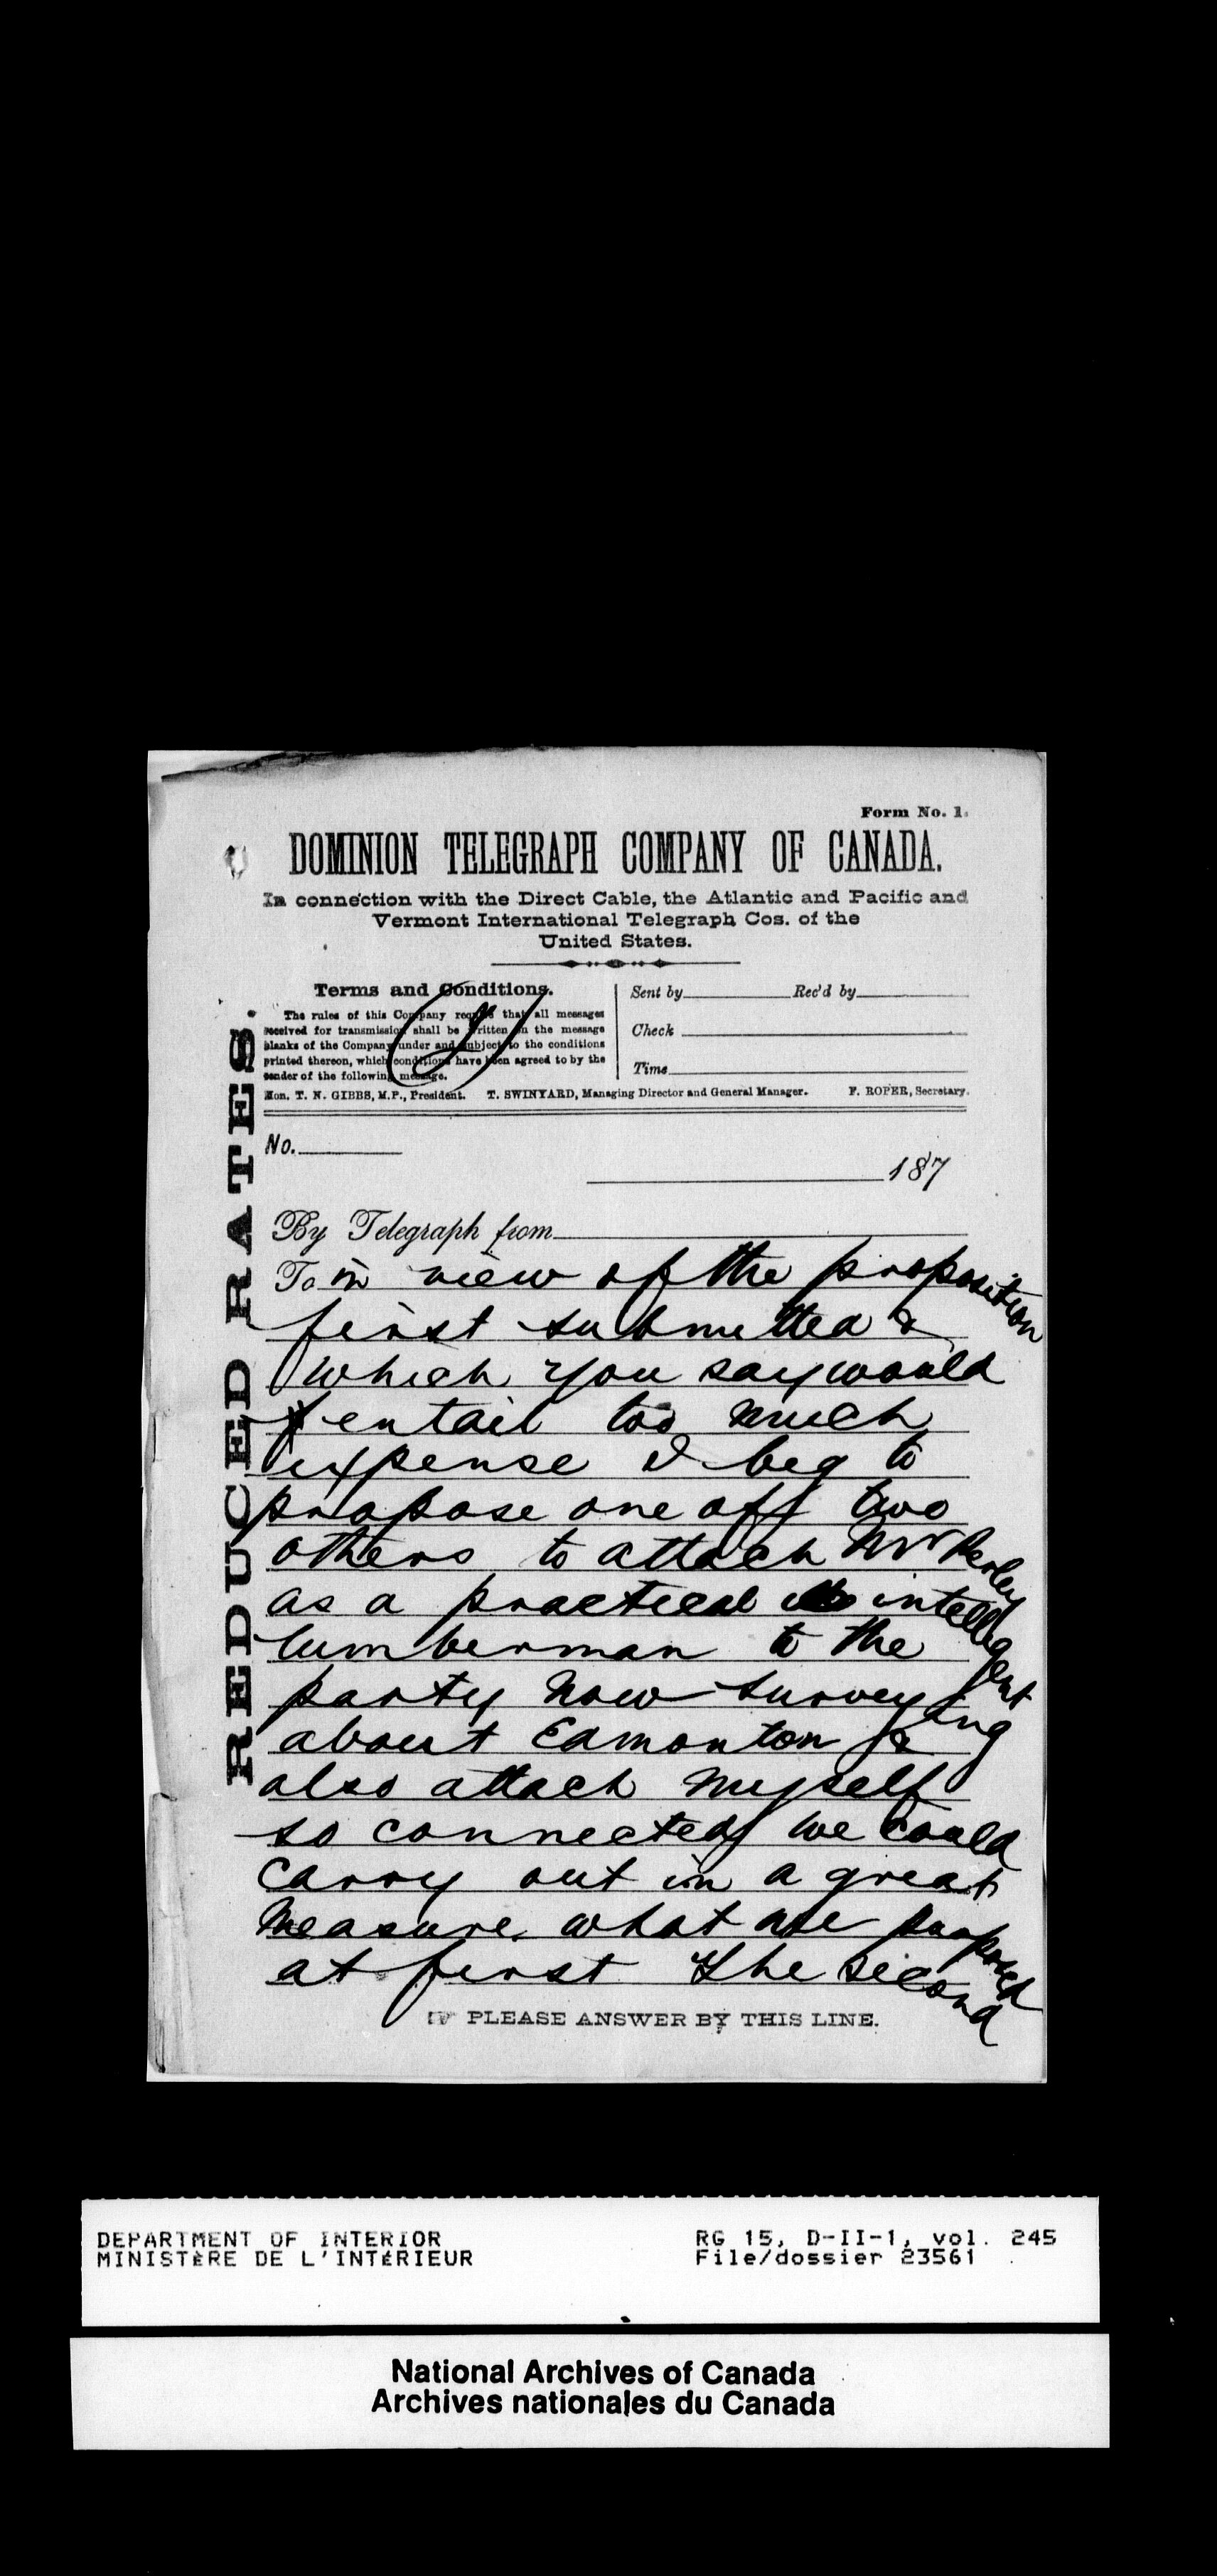 Form No. 1.
DOMINION TELEGRAPH COMPANY OF CANADA.
In connection with the Direct Cable, the Atlantic and Pacific and
Vermont International Telegraph Cos. of the
United States.
Terms and Conditions.
The rules of this Company require that all messages
received for transmission shall be written on the message
blanks of the Company under and subject to the conditions
printed thereon, which conditions have been agreed to by the
sender of the following message.
Sent by Rec'd by
Check
Time
Hon. T. N. GIBBS, M.P., President. T. SWINYARD, Managing Director and General Manager. F. ROPER, Secretary.
REDUCED RATES.
No.
187
By Telegraph from
To in view of the proposition
first submitted &
which you say would
entail too much
expense I beg to
propose one off two
others to attach Mr Perley
as a practical intelligent
lumberman to the
party now surveying
about Edmonton &
also attach myself
so connected we could
carry out in a great
measure what we purposed
at first The second
PLEASE ANSWER BY THIS LINE.
DEPARTMENT OF INTERIOR
MINISTÈRE DE L'INTÉRIEUR
RG 15, D-II-1, vol. 245
File/dossier 23561
National Archives of Canada
Archives nationales du Canada